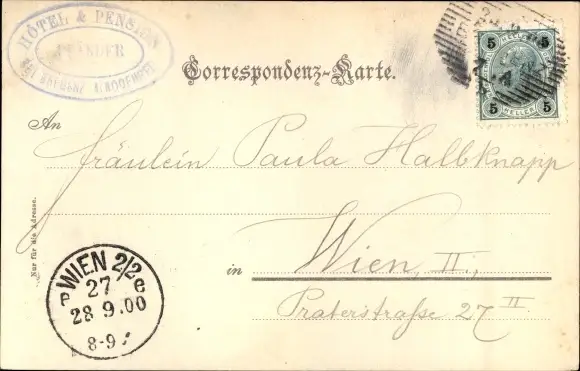 HÔTEL & PENSION
Correspondenz-Karte.
5 5
5 5
HELLER
An
Fräulein Paula Halbknapp
in Wien, II.,
Praterstraße 27 II
Nur für die Adresse.
WIEN 2/2
P 27 e
28 9.00
8-9